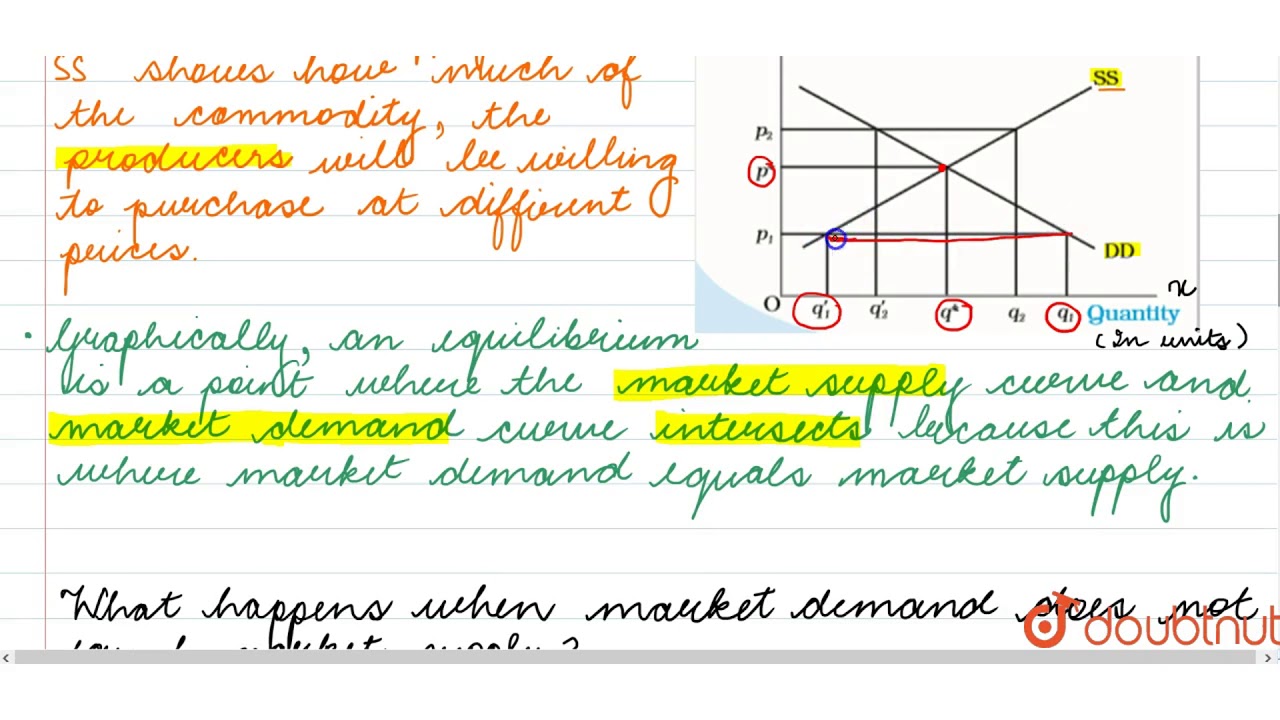 SS shows how much of
the commodity, the
producers will be willing
to purchase at different
prices.
SS
p₂
p
p₁
DD
O
q′₁ q′₂ q* q₂ q₁ Quantity
x
(In units)
• Graphically, an equilibrium
is a point where the market supply curve and
market demand curve intersects because this is
where market demand equals market supply.
What happens when market demand does not
equal market supply?
doubtnut